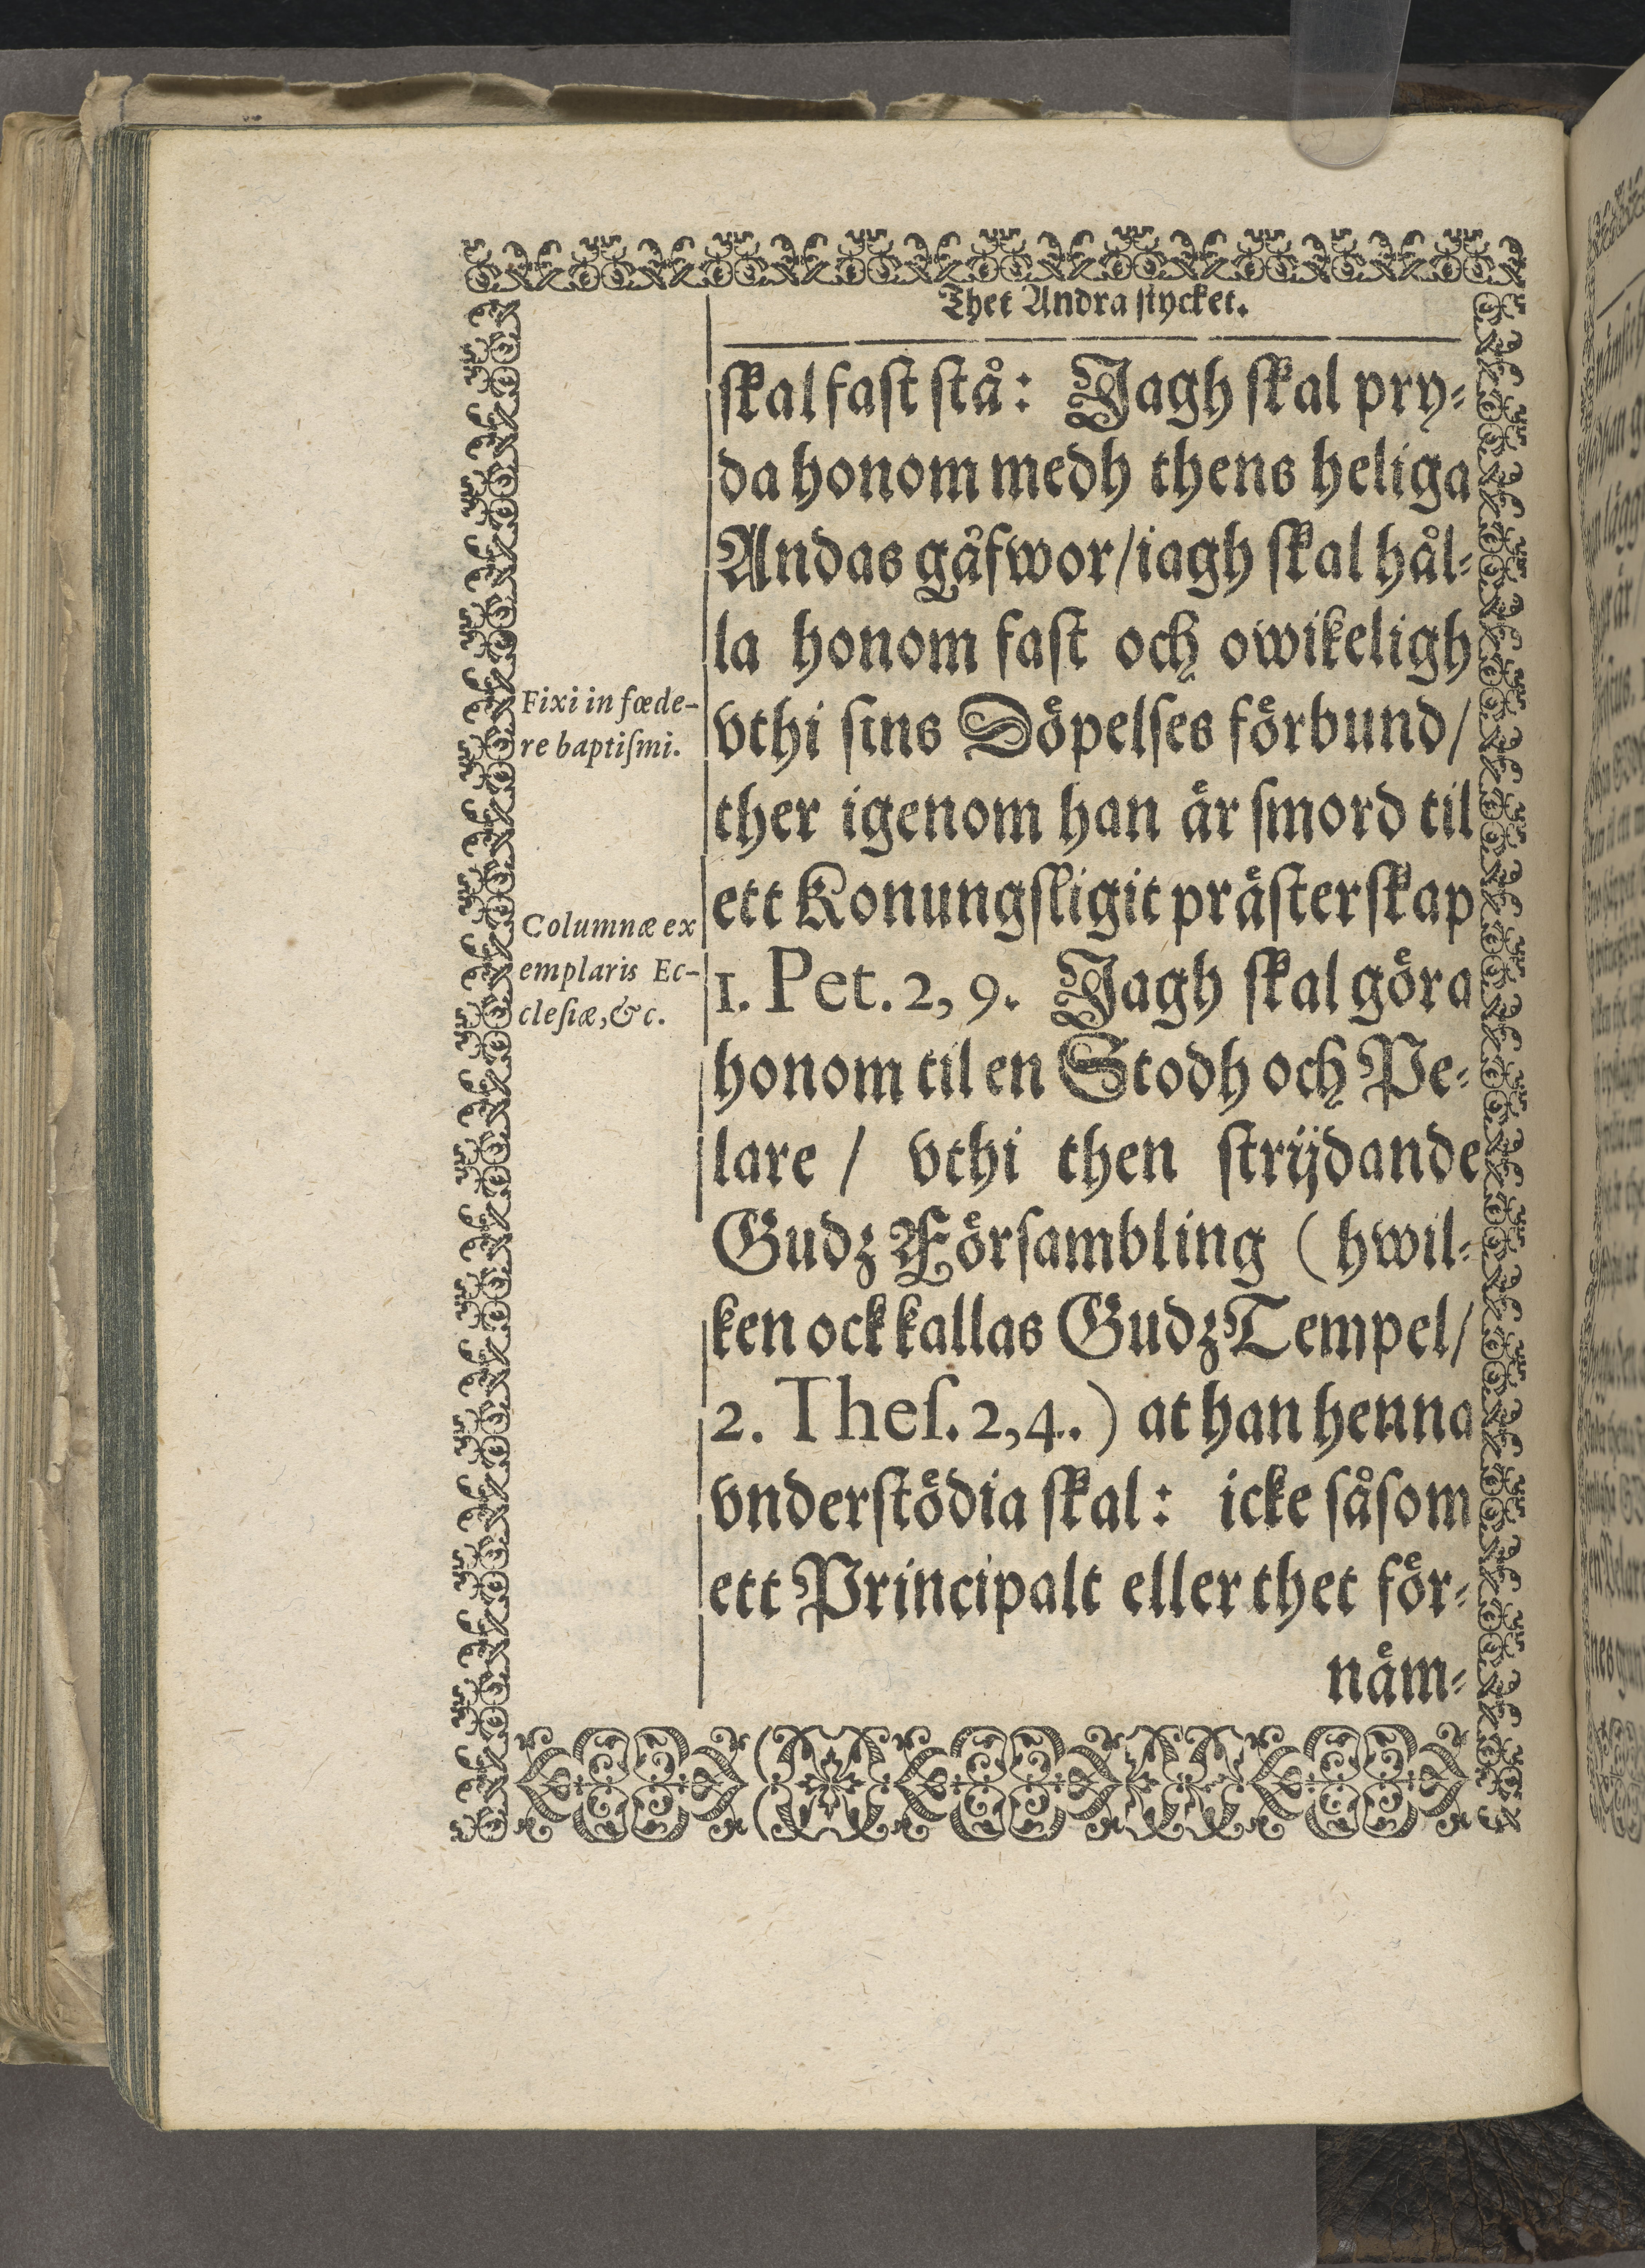 Thet Andra stycket.
skal fast stå: Jagh skal pry-
da honom medh thens heliga
Andas gåfwor/iagh skal hål-
la honom fast och owikeligh
Fixi in fœde-
re baptiſmi.
vthi sins Döpelses förbund/
ther igenom han är smord til
ett Konungsligit prästerskap
Columnæ ex
emplaris Ec-
cleſiæ, &c.
1. Pet. 2, 9. Jagh skal göra
honom til en Stodh och Pe-
lare / vthi then strijdande
Gudz Försambling (hwil-
ken ock kallas Gudz Tempel/
2. Theſ. 2,4..) at han henna
vnderstödia skal: icke såsom
ett Principalt eller thet för-
näm-